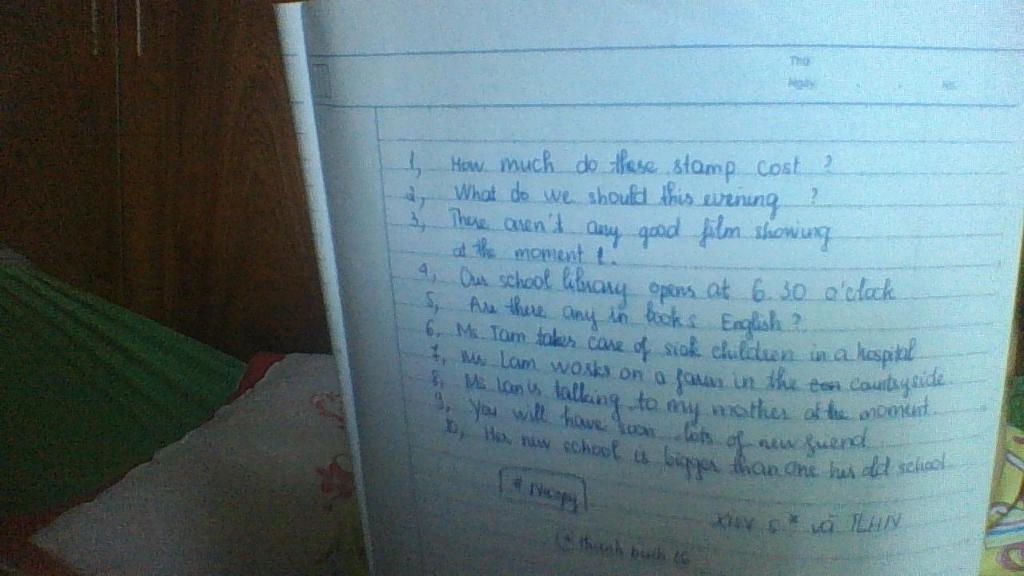 Thứ
Ngày
1, How much do these stamp cost ?
2, What do we should this evening ?
3, There aren't any good film showing
at the moment !.
4, Our school library opens at 6.30 o'clock
5, Are there any in books English ?
6, Ms. Tam takes care of sick children in a hospital
7, Mr Lam works on a farm in the countryside.
8, Ms Lan is talking to my mother at the moment
9, You will have soon lots of new friend.
10, Her new school is bigger than one her old school
XHV 5 * và TLHN